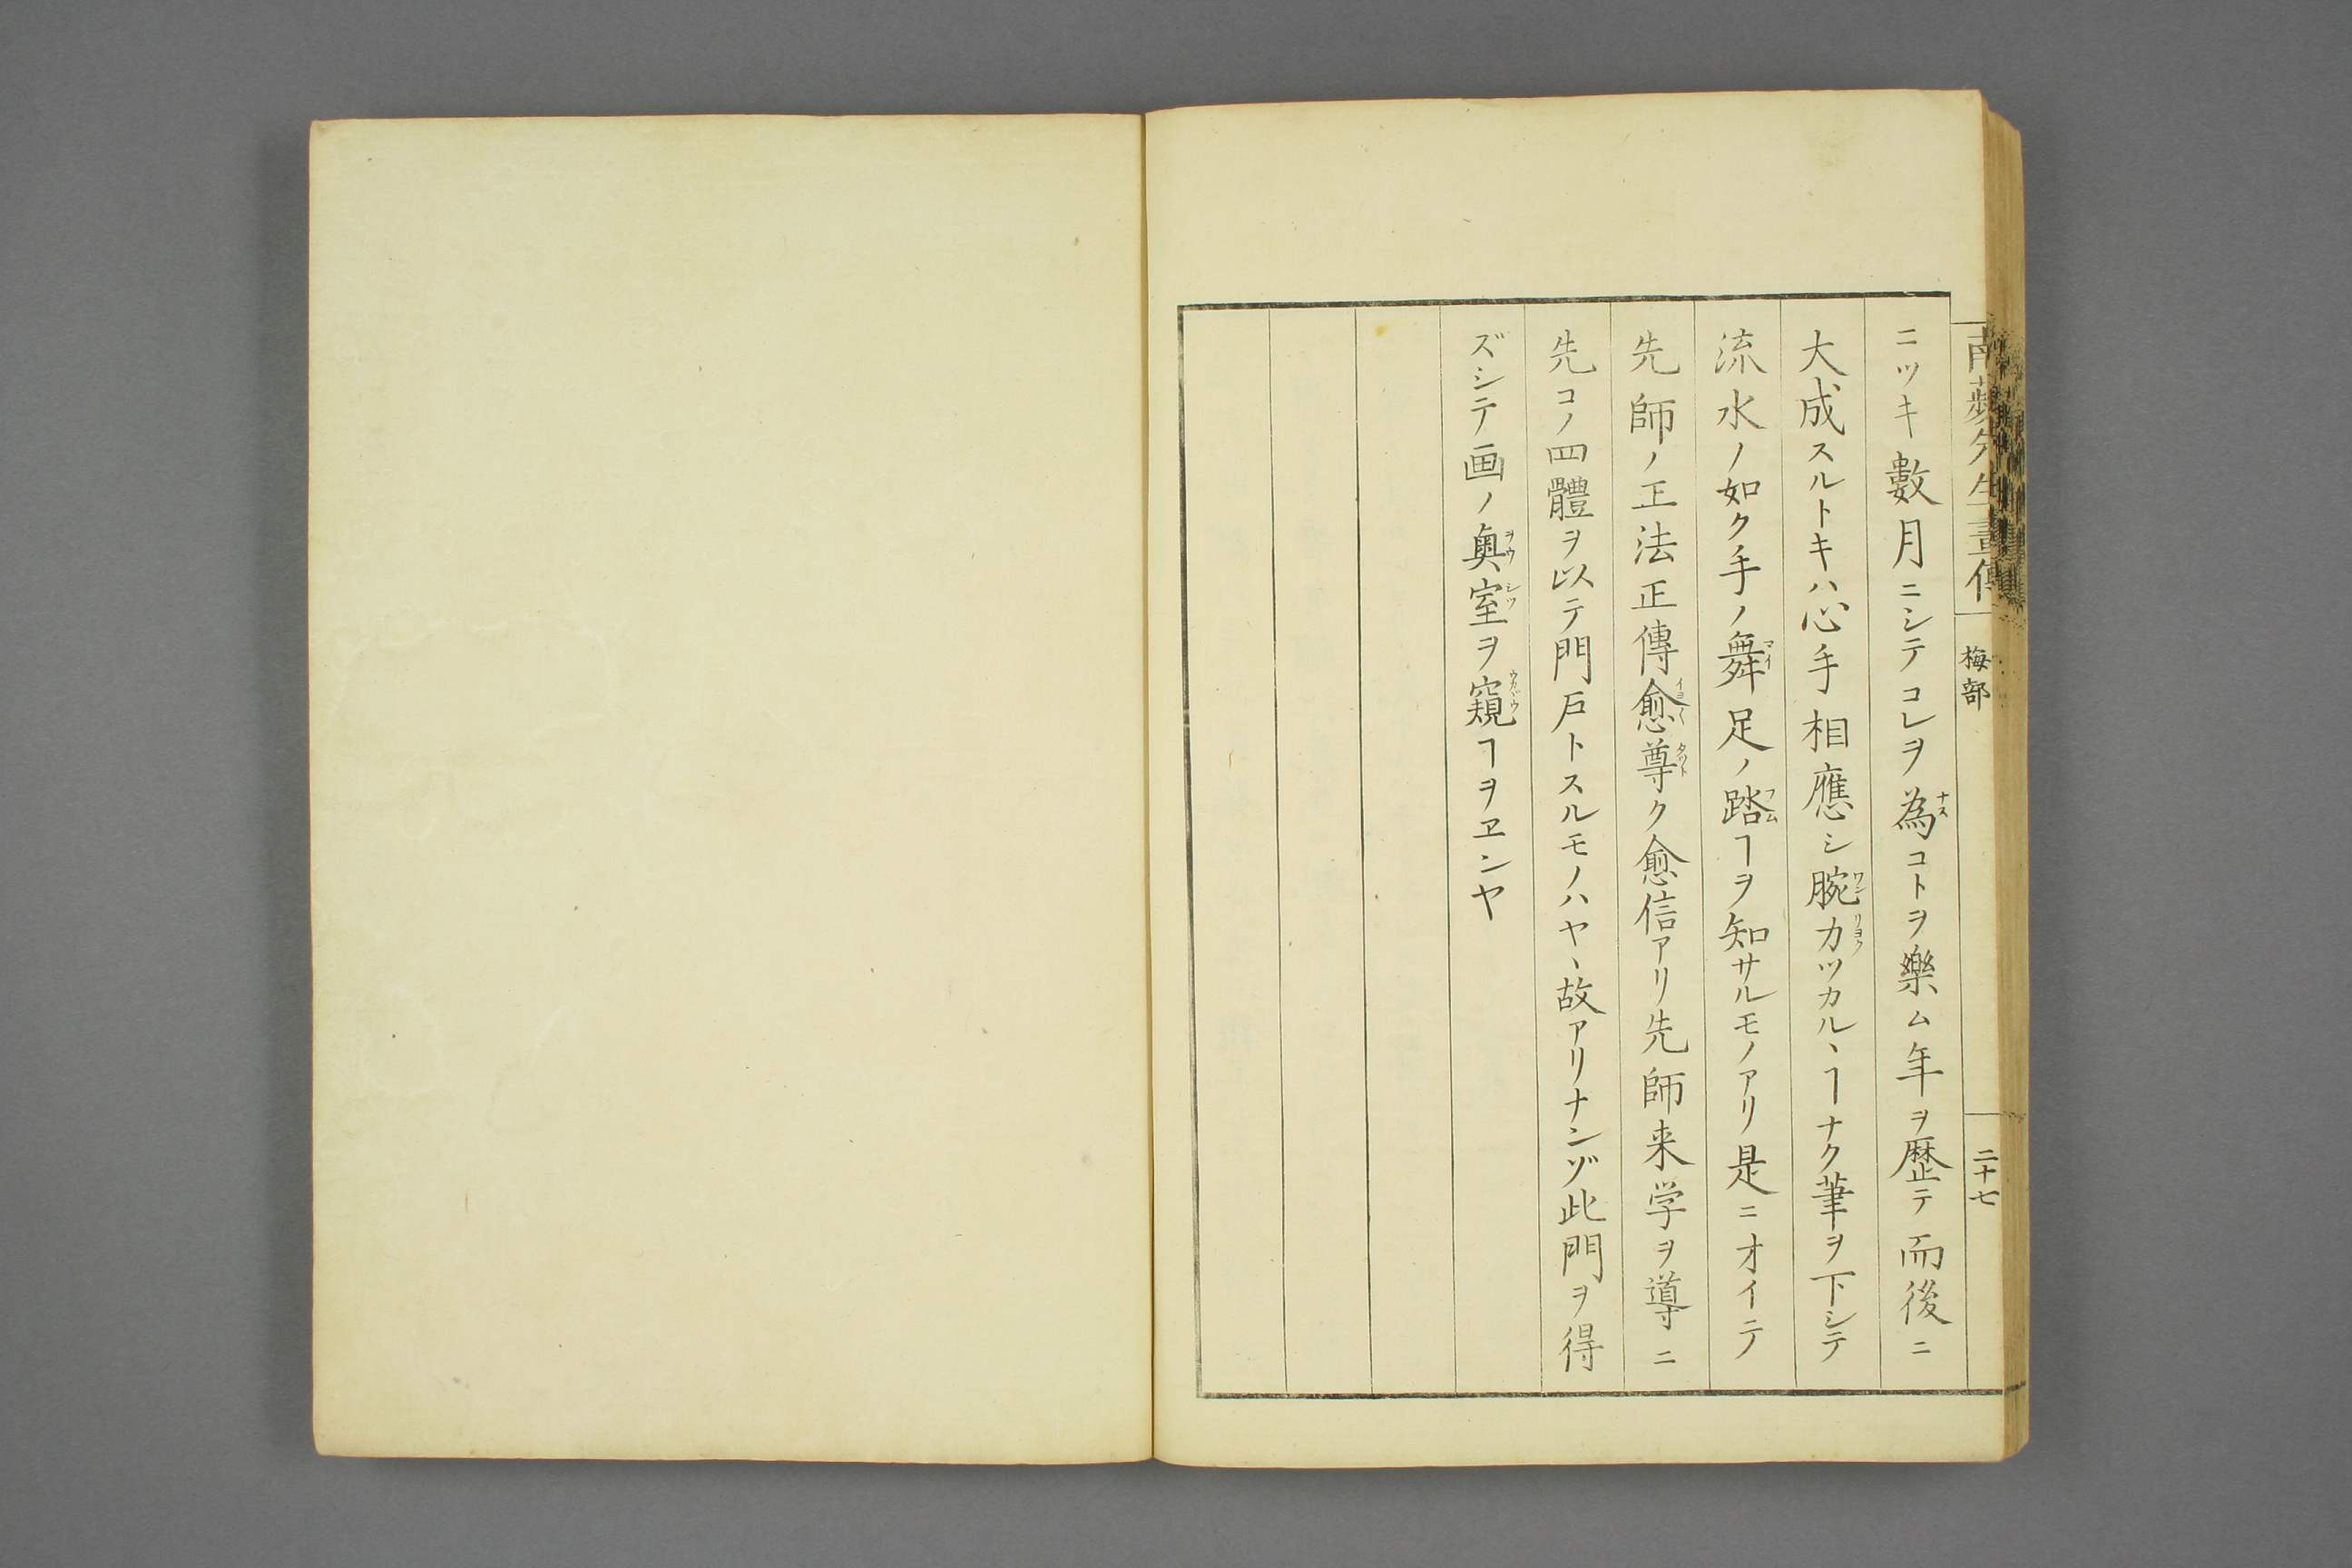 南蘋先生畫傳
梅部
二十七
ニツキ數月ニシテコレヲ為コトヲ樂ム年ヲ歴テ而後ニ
ナス
大成スルトキハ心手相應シ腕力ツカルヽヿナク筆ヲ下シテ
ワンリヨク
流水ノ如ク手ノ舞足ノ踏ヿヲ知サルモノアリ是ニオイテ
マイ
フム
先師ノ正法正傳愈尊ク愈信アリ先師来学ヲ導ニ
イヨ〱
タツト
先コノ四體ヲ以テ門戸トスルモノハヤヽ故アリナンゾ此門ヲ得
ズシテ画ノ奥室ヲ窺ヿヲヱンヤ
ヲウシツ
ウカヾウ